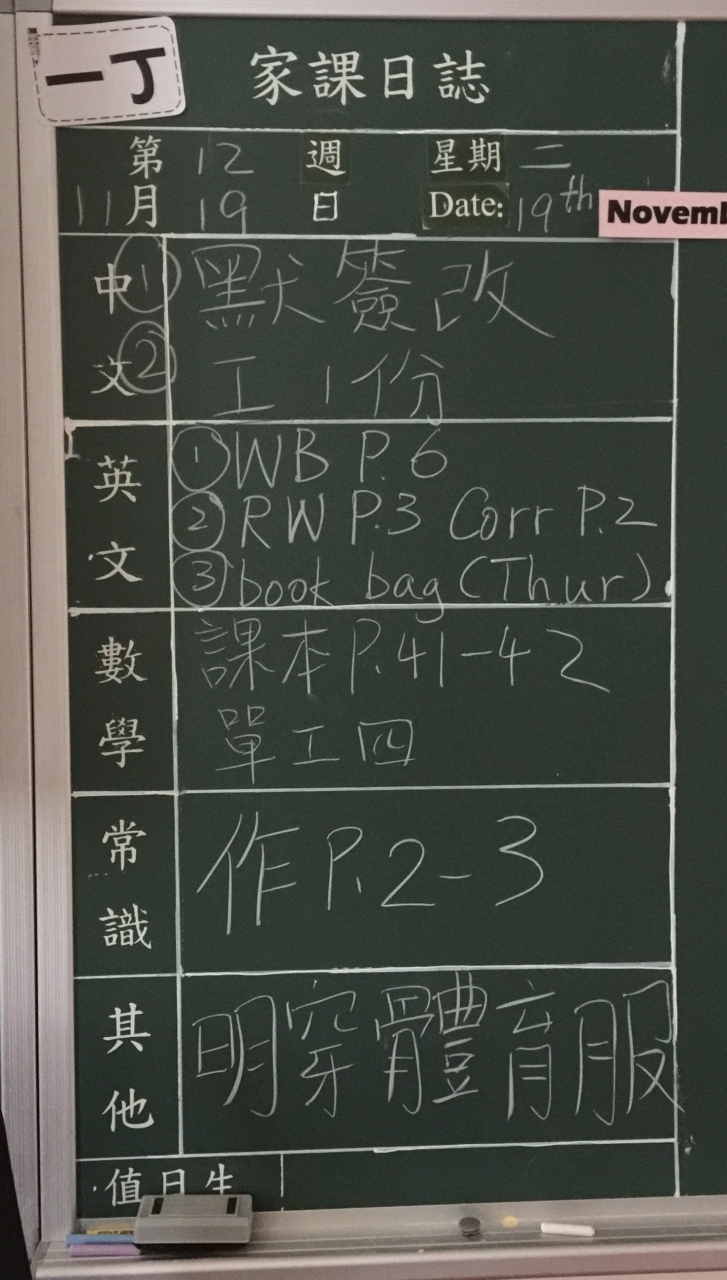 一丁
家課日誌
第 12 週 星期 二
11月 19 日 Date: 19th
Novemb
中文
① 默簽改
② 工1份
英文
① WB P.6
② RW P.3 Corr P.2
③ book bag (Thur).
數學
課本P.41-42
單工四
常識
作P.2-3
其他
明穿體育服
值日生